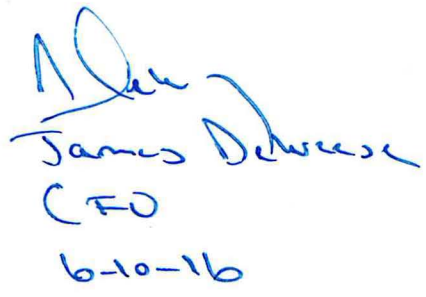 James Deweese
CFO
6-10-16